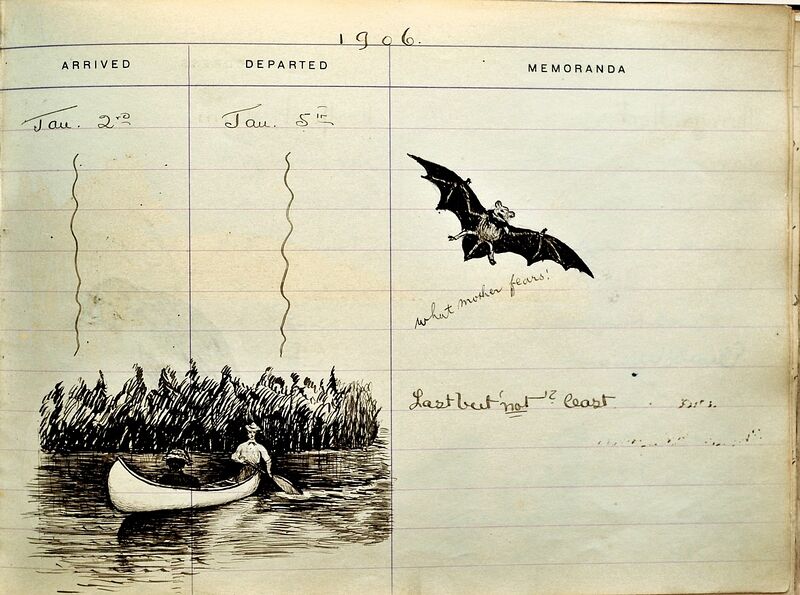 1906.
ARRIVED DEPARTED MEMORANDA
Jan. 2nd Jan. 5th
what mother fears!
Last but "not" least